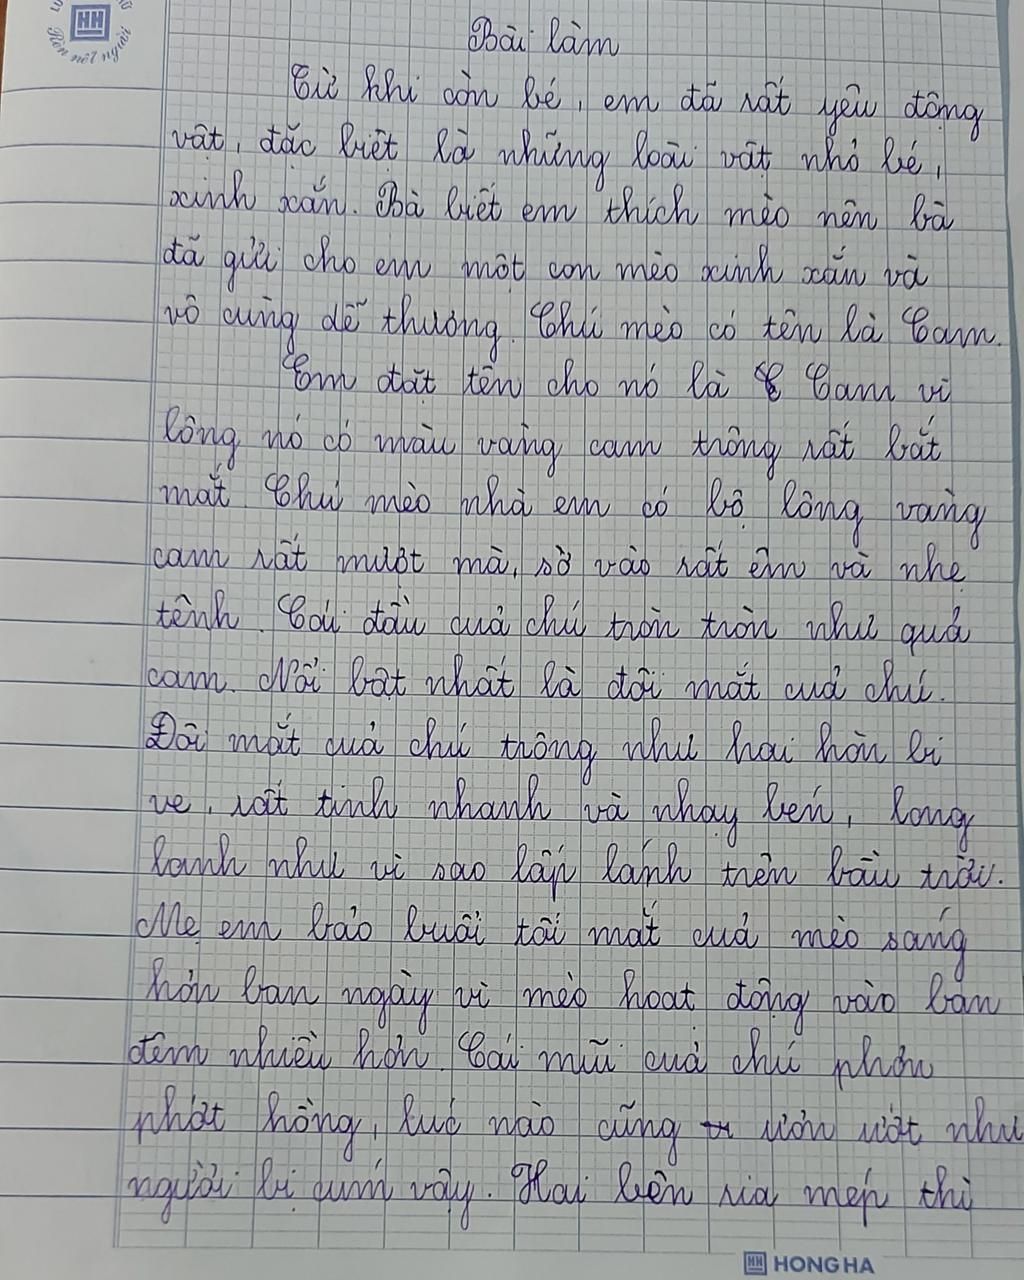 HH
Rèn nết người
Bài làm
Từ khi còn bé, em đã rất yêu động
vật, đặc biệt là những loài vật nhỏ bé,
xinh xắn. Bà biết em thích mèo nên bà
đã gửi cho em một con mèo xinh xắn và
vô cùng dễ thương. Chú mèo có tên là Cam.
Em đặt tên cho nó là C Cam vì
lông nó có màu vàng cam trông rất bắt
mắt. Chú mèo nhà em có bộ lông vàng
cam rất mượt mà, sờ vào rất êm và nhẹ
tênh. Cái đầu của chú tròn tròn như quả
cam. Nổi bật nhất là đôi mắt của chú.
Đôi mắt của chú trông như hai hòn bi
ve, rất tinh nhanh và nhạy bén, long
lanh như vì sao lấp lánh trên bầu trời.
Mẹ em bảo buổi tối mắt của mèo sáng
hơn ban ngày vì mèo hoạt động vào ban
đêm nhiều hơn. Cái mũi của chú phơn
phớt hồng, lúc nào cũng ươn ướt như
người bị cúm vậy. Hai bên ria mép thì
HH HONG HA